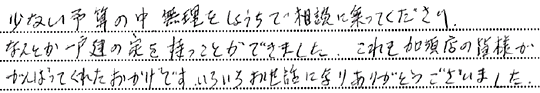 少ない予算の中 無理をしょうちで相談に乗ってくださり、
なんとか一戸建の家を持つことができました。これも加須店の皆様が
がんばってくれたおかげです。いろいろお世話になりありがとうございました。